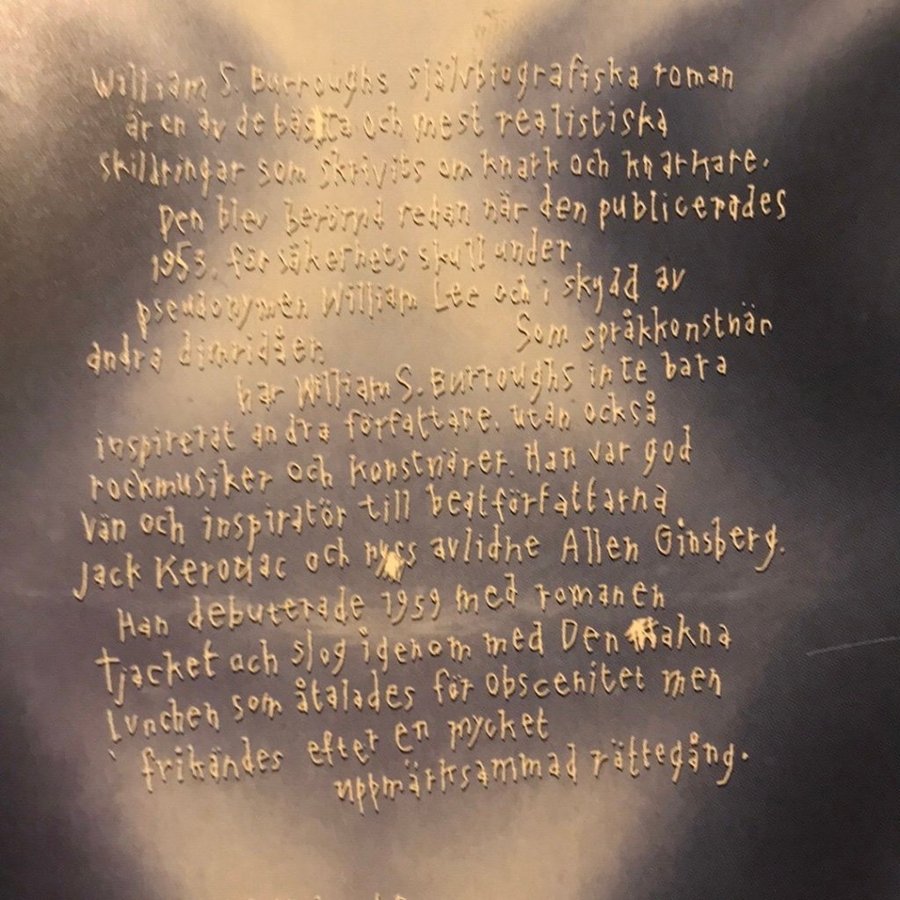 William S. Burroughs självbiografiska roman
är en av de bästa och mest realistiska
skildringar som skrivits om knark och knarkare.
Den blev berömd redan när den publicerades
1953, för säkerhets skull under
pseudonymen William Lee och i skydd av
andra dimridåer.
Som språkkonstnär
har William S. Burroughs inte bara
inspirerat andra författare, utan också
rockmusiker och konstnärer. Han var god
vän och inspiratör till beatförfattarna
Jack Kerouac och nyss avlidne Allen Ginsberg.
Han debuterade 1959 med romanen
Tjacket och slog igenom med Den nakna
lunchen som åtalades för obscenitet men
frikändes efter en mycket
uppmärksammad rättegång.